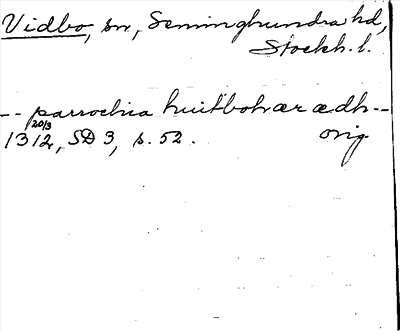 Vidbo, sn, Seminghundra hd,
Stockh. l.
-- parrochia huitbohæræedh --
20/3
1312, SD 3, s. 52. orig.